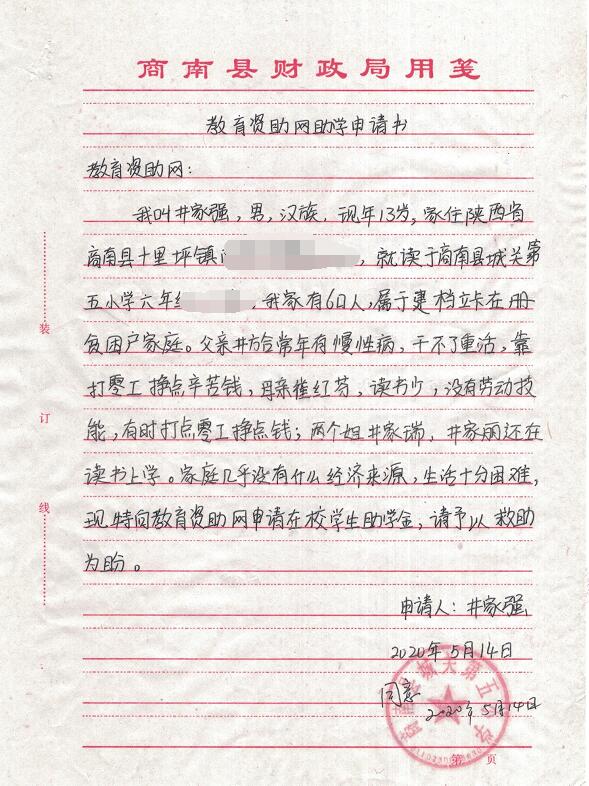 商南县财政局用笺
教育资助网助学申请书
教育资助网：
我叫井家强，男，汉族，现年13岁，家住陕西省
商南县十里坪镇，就读于商南县城关第
五小学六年，我家有6口人，属于建档立卡在册
贫困户家庭。父亲井方合常年有慢性病，干不了重活，靠
打零工挣点辛苦钱，母亲红芬，读书少，没有劳动技
能，有时打点零工挣点钱；两个姐井家瑞，井家丽还在
读书上学。家庭几乎没有什么经济来源，生活十分困难，
现特向教育资助网申请在校学生助学金，请予以救助
为盼。
申请人：井家强
2020年5月14日
同意
2020年5月14日
城关第五小学
第 页
装
订
线